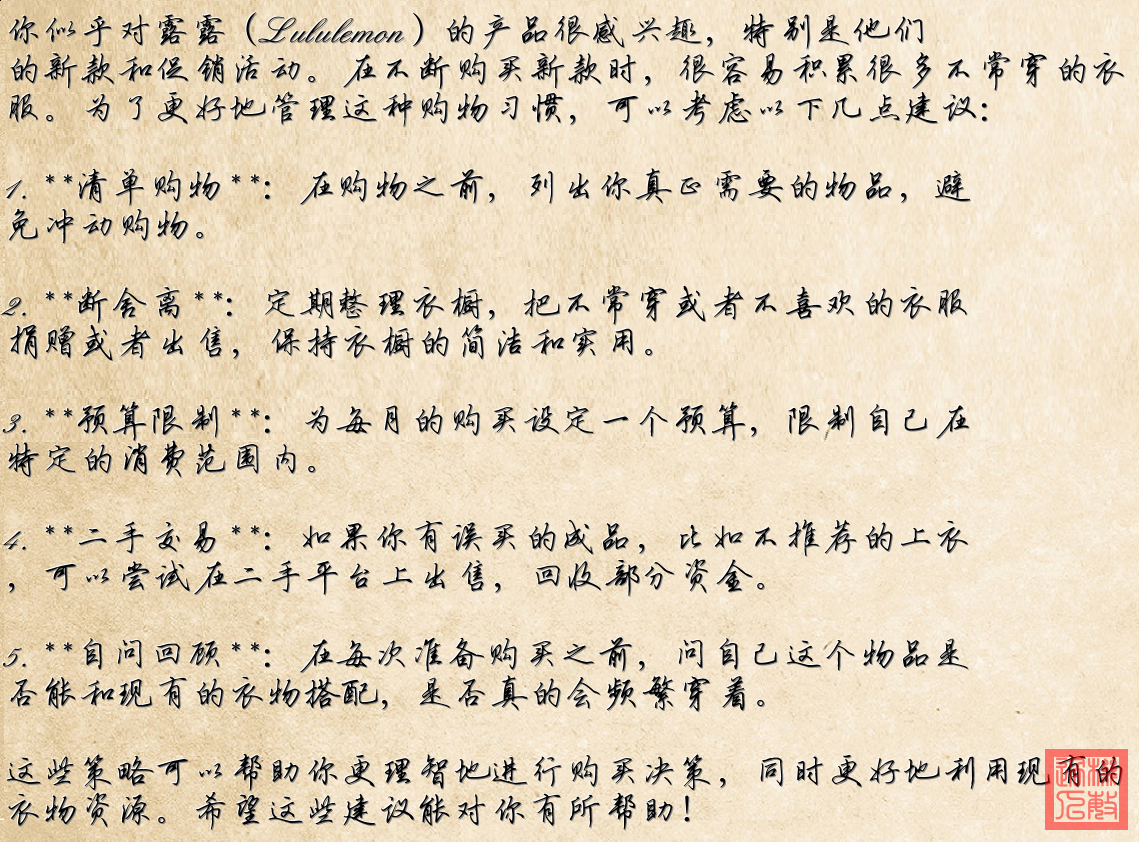 你似乎对露露（Lululemon）的产品很感兴趣，特别是他们
的新款和促销活动。在不断购买新款时，很容易积累很多不常穿的衣
服。为了更好地管理这种购物习惯，可以考虑以下几点建议：
1. **清单购物**：在购物之前，列出你真正需要的物品，避
免冲动购物。
2. **断舍离**：定期整理衣橱，把不常穿或者不喜欢的衣服
捐赠或者出售，保持衣橱的简洁和实用。
3. **预算限制**：为每月的购买设定一个预算，限制自己在
特定的消费范围内。
4. **二手交易**：如果你有误买的成品，比如不推荐的上衣
，可以尝试在二手平台上出售，回收部分资金。
5. **自问回顾**：在每次准备购买之前，问自己这个物品是
否能和现有的衣物搭配，是否真的会频繁穿着。
这些策略可以帮助你更理智地进行购买决策，同时更好地利用现有的
衣物资源。希望这些建议能对你有所帮助！